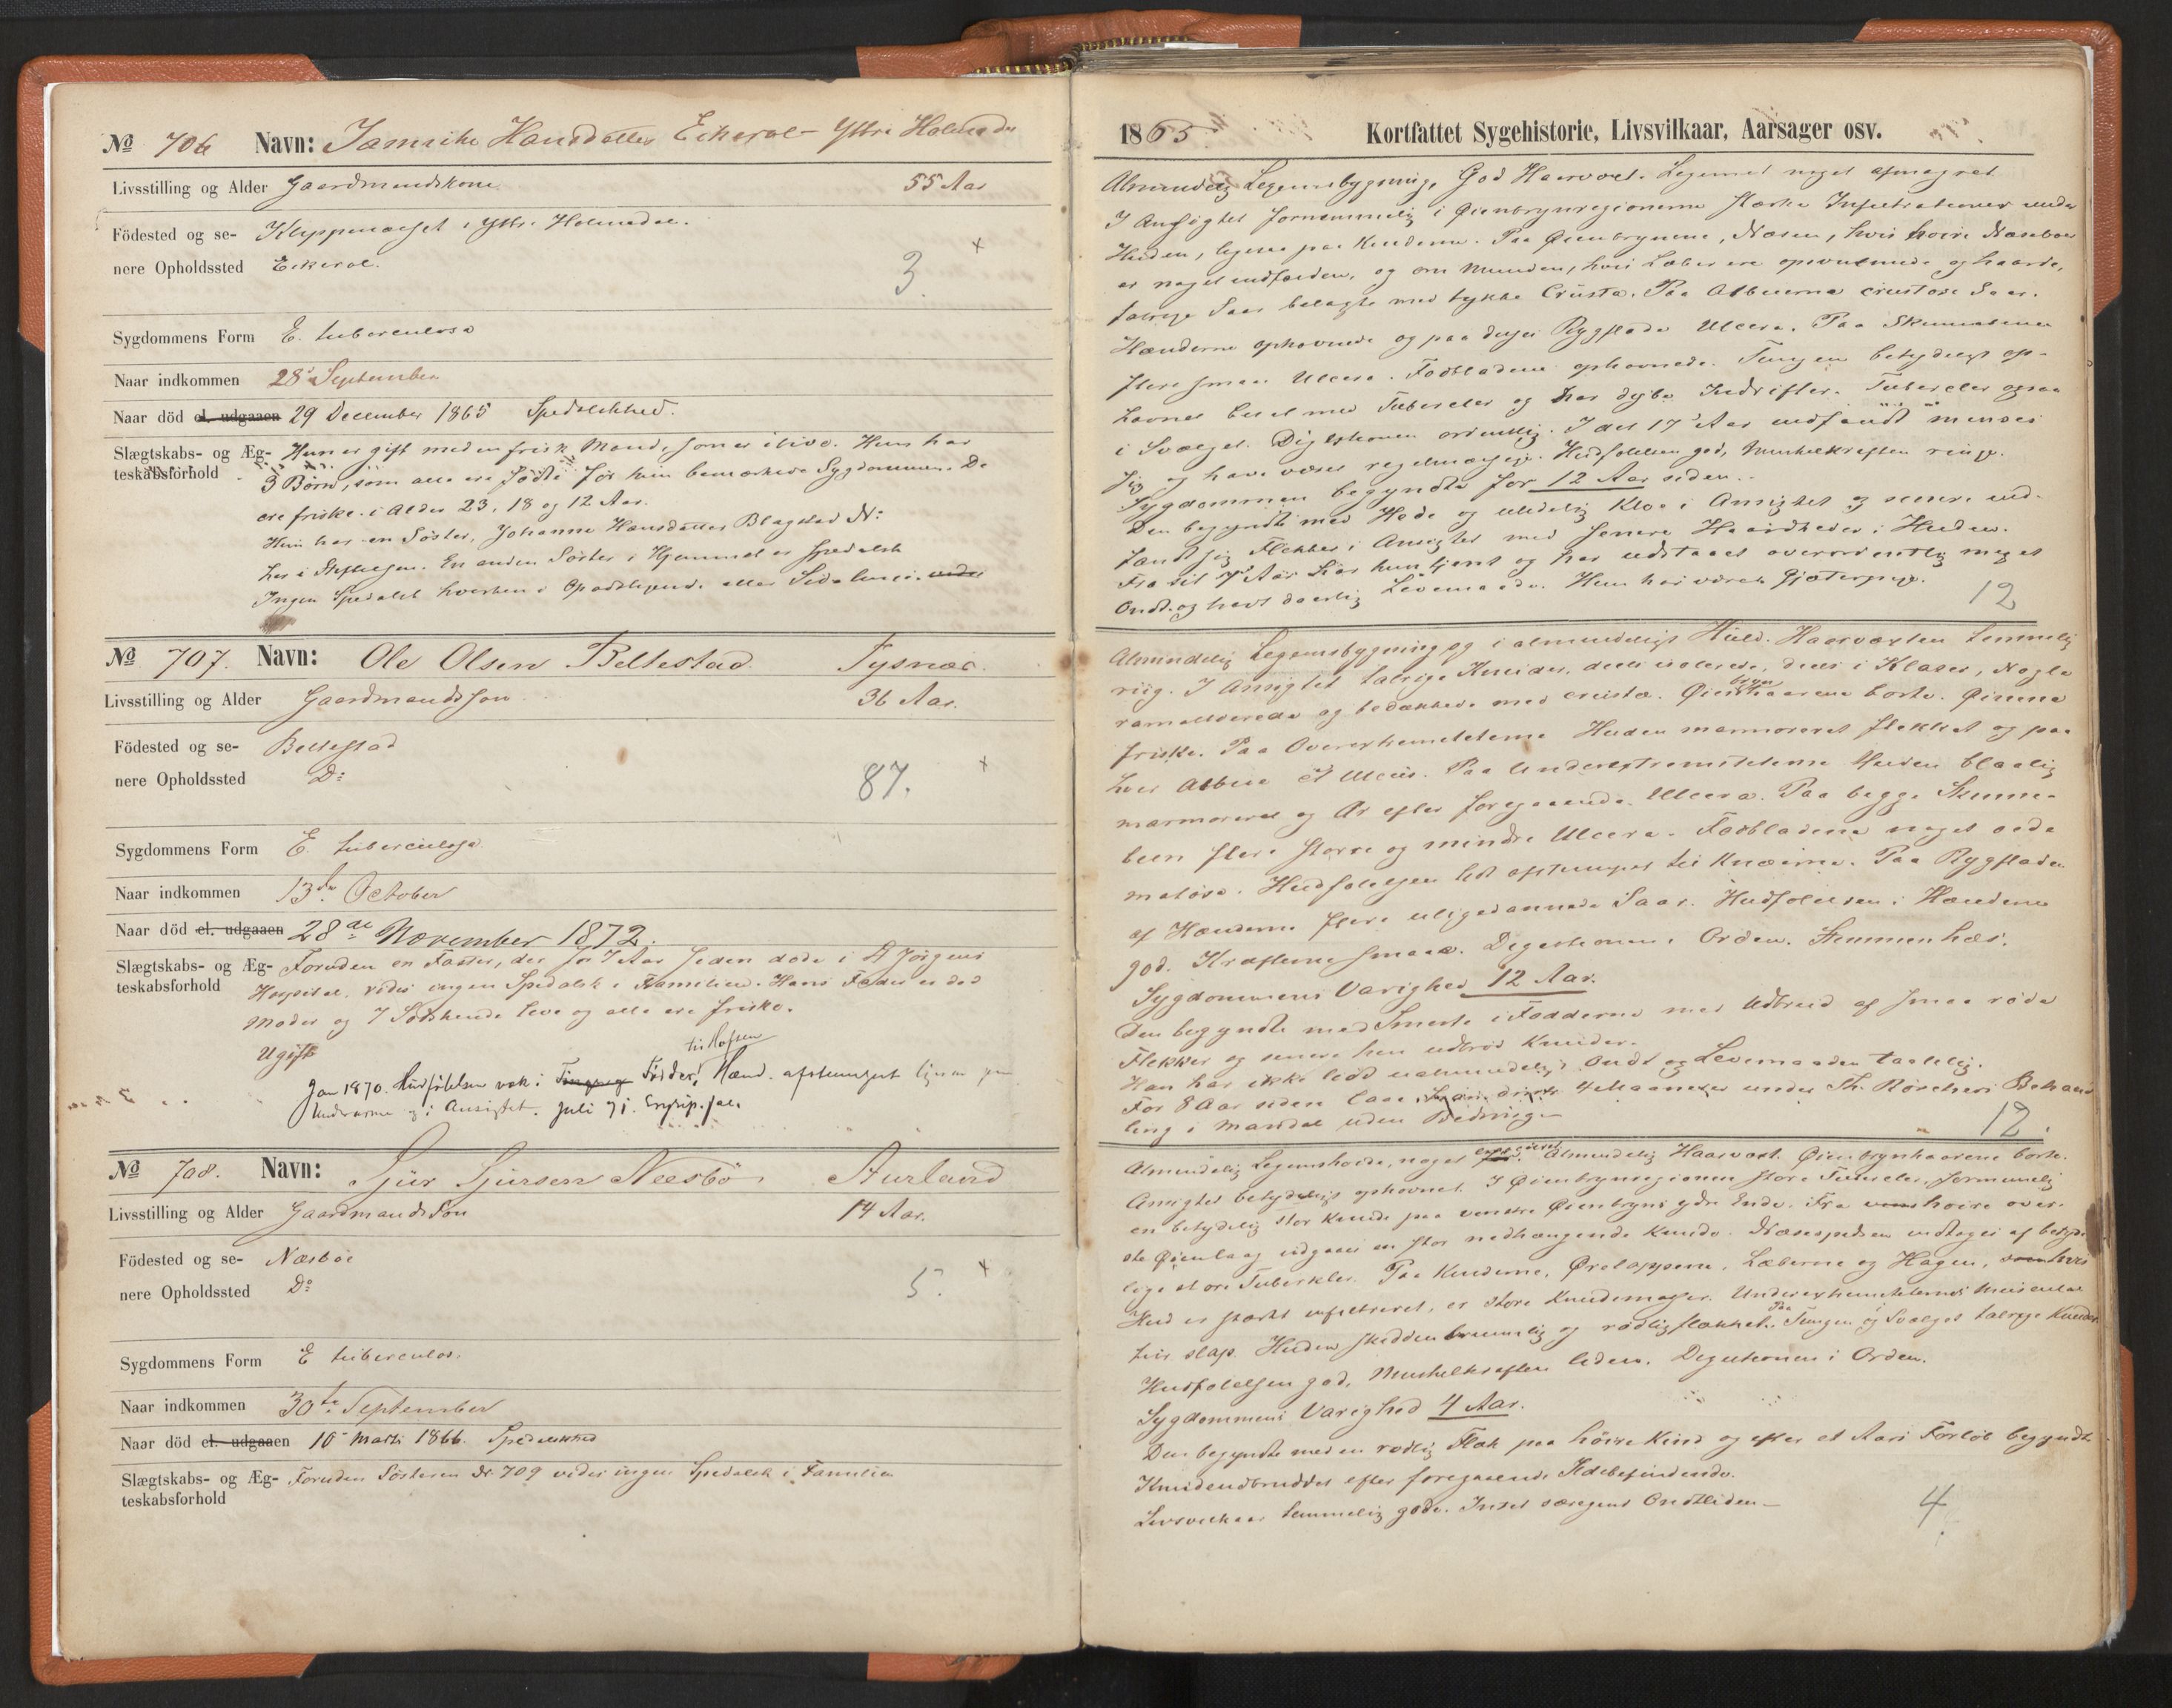 № 706 Navn: Hansdatter Eckerol Yttre Holmedal
Livsstilling og Alder Gaardmandskone 55 Aar
Födested og se- i Yttre Holmedal.
nere Opholdssted Eckerol.
3.
Sygdommens Form E. tuberculosa
Naar indkommen 28 September
Naar död el. udgaaen 29 December 1865 Spedalskhed.
Slægtskabs- og Æg- Hun er gift med en frisk Mand, som er ilive. Hun har
teskabsforhold 3 Börn, som alle ere födte för hun bemærkede Sygdommen. De
ere friske i Alder 23, 18 og 12 Aar.
Hun har en Söster, Johanne Hansdatter Blagstad N:
her i Stiftelsen. En anden Söster i Hjemmet er spedalsk
Ingen Spedalsk hverken i Opadstigende eller Sidelinie.
№ 707. Navn: Ole Olsen Beltestad Tysnæs.
Livsstilling og Alder Gaardmandssön 36 Aar.
Födested og se- Beltestad
nere Opholdssted D:
87.
Sygdommens Form E. tuberculosa
Naar indkommen 13de October
Naar död el. udgaaen 28de November 1872.
Slægtskabs- og Æg- Foruden en Faster, der for 7 Aar siden döde i St Jörgens
teskabsforhold Hospital, vides ingen Spedalsk i Familien. Hans Fader er död
Moder og 7 Södskende leve og alle ere friske.
Ugift
til Hoften
Jan 1870. Hudfölelsen Födder, Hænd. afstumpet ligesaa paa
Underarme og i Ansigtet. Juli 71.
№ 708. Navn: Sjur Sjursen Neesbö Aurland
Livsstilling og Alder Gaardmandssön 14 Aar.
Födested og se- Næsböe
nere Opholdssted D:
5.
Sygdommens Form E tuberculos.
Naar indkommen 30te September
Naar död el. udgaaen 10 Marts 1866. Spedalskhed
Slægtskabs- og Æg- Foruden Sösteren No 709 vides ingen Spedalsk i Familien
teskabsforhold
1865 Kortfattet Sygehistorie, Livsvilkaar, Aarsager osv.
Almindelig Legemsbygning, God Haarvæxt. Legemet noget afmagret
I Ansigtet fornemmelig i Öienbrynregionerne stærke Infiltrationer under
Huden, ligesaa paa Kinderne. Paa Öienbrynene, Næsen, hvis höire Næsebor
er noget indfalden, og om Munden, hvis Læber ere opsvulmede og haarde,
talrige Saar belagte med tykke Crusta. Paa Albuerne crustöse Saar.
Hænderne ophovnede og paa deres Rygflade Ulcera. Paa Skinnebenene
flere smaa Ulcera. Fodbladene ophovnede. Tungen betydeligt op-
hovnet besat med Tubercler og har dybe Indrifter. Tubercler ogsaa
i Svælget. Digestionen ordentlig. I det 17 Aar indfandt menses
sig og have været regelmæssige. Hudfölelsen god, Muskelkraften ringe.
Sygdommen begyndte for 12 Aar siden.
Den begyndte med Hede og Klöe i Ansigtet og senere ind-
fandt sig Flekker i Ansigtet med senere Haardheder i Huden.
Fra sit Aar har hun tjent og har udstaaet overordentlig meget
Ondt og havt daarlig Levemaade. Hun har været Gjæterpige.
12
Almindelig Legemsbygning og i almindeligt Huld. Haarvæxten temmelig
riig. I Ansigtet talrige Knuder, deels isolerede, deels i Klaser, Nogle
ramollerede og bedækkede med crusta. Öienbrynhaarene borte. Öinene
friske. Paa Overexhemiteterne Huden marmoreret flekket og paa
hver Albue et Ulcus. Paa Underextremiteterne Huden blaalig
marmoreret og Ar efter foregaaende Ulcera. Paa begge Skinne-
been flere större og mindre Ulcera. Fodbladene noget öede
matöse. Hudfölelsen lidt afstumpet til Knæerne. Paa Rygfladen
af Hænderne flere uligedannede Saar. Hudfölelsen i Hænderne
god. Kræfterne smaae. Digestionen i Orden. Stemmen hæs.
Sygdommens Varighed 12 Aar.
Den begyndte med Smerte i Födderne med Udbrud af smaa röde
Flekker og senere hen udbröd Knuder.
Han har ikke lidt ualmindeligt Ondt og Levemaaden taalelig.
For 8 Aar siden laae Maaneder under Th. Behand
ling i Mandal uden Bedring.
12.
Almindelig Legemshöide, noget Almindelig Haarvæxt. Öienbrynhaarene borte.
Ansigtet betydeligt ophovnet. I Öienbrynregionen store Tubercler, fornemmelig
en betydelig stor Knude paa venstre Öienbryns ydre Ende. Fra höire över-
ste Öienlaag udgaaer en stor nedhængende Knude. Næsespidsen indtages af betyde
lige store Tuberkler. Paa Kinderne, Örelapperne, Læberne og Hagen, hvis
Hud er stærkt infiltreret, er store Knudemasser. Underexhemiteternes Muscula
tur slap. Huden brunlig og rödlig flækket. Paa Tungen og i Svælget talrige Knuder.
Hudfölelsen god, Muskelkraften liden. Digestionen i Orden.
Sygdommens Varighed 4 Aar.
Den begyndte med en rödlig Flek paa höire Kind og efter et Aars Forlöb begyndte
Knudeudbruddet efter foregaaende Ildebefindende.
Livsvilkaar temmelig gode. Intet særegent Ondtliden
4